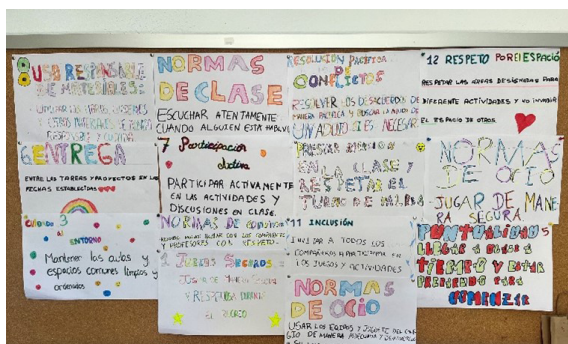 8 USO RESPONSABLE
DE MATERIALES:
UTILIZAR LOS LIBROS,
Y OTROS MATERIALES DE MANERA
6 ENTREGA
ENTRE LAS TAREAS Y PROYECTOS EN LAS
FECHAS ESTABLECIDAS
CUIDADO 3
AL
ENTORNO
Mantener las aulas y
espacios comunes limpios y
ordenados
NORMAS
DE CLASE
ESCUCHAR ATENTAMENTE
CUANDO ALGUIEN ESTÁ
7 Participación
activa
PARTICIPAR ACTIVAMENTE
EN LAS ACTIVIDADES Y
DISCUSIONES EN CLASE.
NORMAS DE
PROFESORES CON RESPETO.
JUEGOS SEGUROS
JUGAR DE MANERA
Y RESPETUOSA DURANTE
EL RECREO
RESOLUCIÓN PACÍFICA
DE
CONFLICTOS
RESOLVER LOS DESACUERDOS DE
MANERA PACÍFICA Y BUSCAR LA AYUDA DE
UN ADULTO SI ES NECESARIO
PRESTAR ATENCIÓN
EN LA CLASE Y
RESPETAR EL
TURNO DE PALABRA
11 INCLUSIÓN
INVITAR A TODOS LOS
COMPAÑEROS A PARTICIPAR EN
LOS JUEGOS Y ACTIVIDADES
NORMAS
DE OCIO
USAR LOS EQUIPOS Y JUGUETES DEL
DE MANERA ADECUADA Y
12 RESPETO POR EL ESPACIO
RESPETAR LAS ÁREAS DESIGNADAS PARA
DIFERENTE ACTIVIDADES Y NO INVADIR
EL ESPACIO DE OTROS.
NORMAS
DE OCIO
JUGAR DE MANE
RA SEGURA
PUNTUALIDAD 5
LLEGAR A CLASE A
TIEMPO Y ESTAR
PREPARADO PARA
COMENZAR